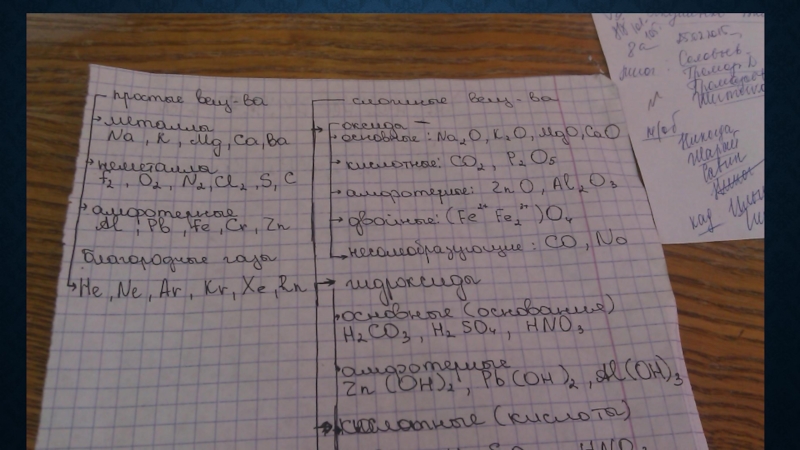 простые вещ-ва
металлы
Na, K, Mg, Ca, Ba
неметаллы
F2, O2, N2, Cl2, S, C
амфотерные
Al, Pb, Fe, Cr, Zn
благородные газы
He, Ne, Ar, Kr, Xe, Rn
сложные вещ-ва
оксиды –
основные: Na2O, K2O, MgO, CaO
кислотные: CO2, P2O5
амфотерные: ZnO, Al2O3
двойные: (Fe2+ Fe2 3+)O4
несолеобразующие: CO, No
гидроксиды
основные (основания)
H2CO3, H2SO4, HNO3
амфотерные
Zn(OH)2, Pb(OH)2, Al(OH)3
кислотные (кислоты)
HNO3
8а
Соловьев